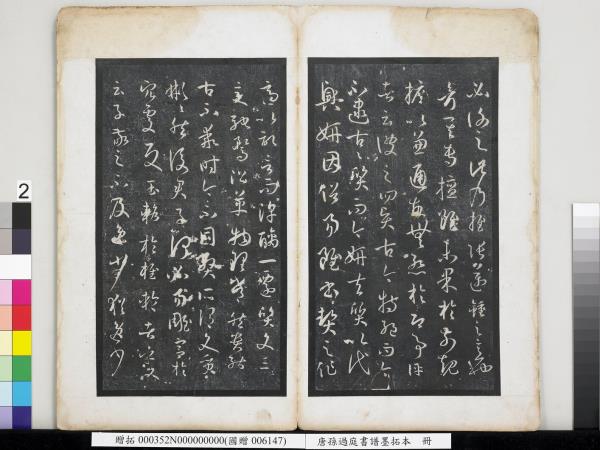 必謝之此乃推張邁鍾之意也
考其專擅雖未果於前規
摭以兼通故無慚於即事評
者云彼之四賢古今特絕而今
不逮古古質而今妍夫質以代
興妍因俗易雖書契之作
適以記言而淳醨一遷質文三
變馳騖沿革物理常然貴能
古不乖時今不同弊所謂文質
彬彬然後君子何必易雕宮於
穴處反玉輅於椎輪者乎又
云子敬之不及逸少猶逸少
2
贈拓 000352N000000000(國贈 006147)
唐孫過庭書譜墨拓本 冊